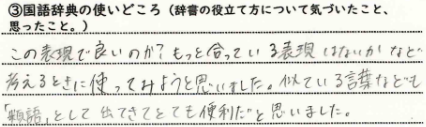 ③国語辞典の使いどころ（辞書の役立て方について気づいたこと、
思ったこと。）
この表現で良いのか？もっと合っている表現はないかなど
考えるときに使ってみようと思いました。似ている言葉なども
「類語」として出てきてとても便利だと思いました。